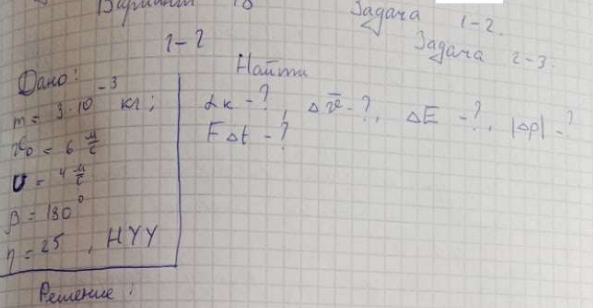 Вариант 18
Задача 1-2.
Задача 2-3.
1-2
Дано:
m = 3·10⁻³ кг;
v₀ = 6 м/с
U = 4 м/с
β = 180°
η = 25, НУУ
Найти
αк - ?, Δv̄ - ?, ΔE - ?, |Δp| - ?
FΔt - ?
Решение: